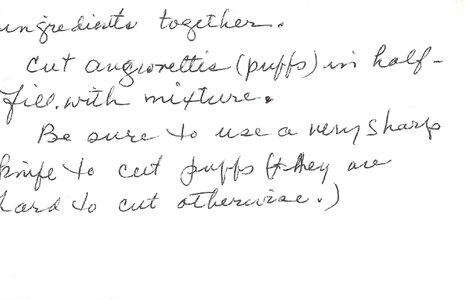 ingredients together.
Cut angiorettis (puffs) in half-
fill with mixture.
Be sure to use a very sharp
knife to cut puffs (they are
hard to cut otherwise.)